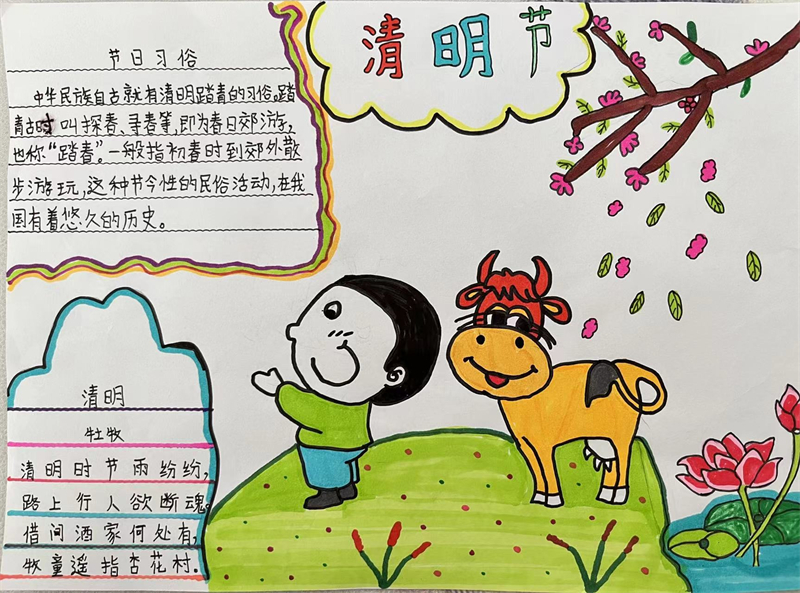 清明节
节日习俗
中华民族自古就有清明踏青的习俗。踏
青古时叫探春、寻春等,即为春日郊游,
也称“踏春”。一般指初春时到郊外散
步游玩,这种节令性的民俗活动,在我
国有着悠久的历史。
清明
牡牧
清明时节雨纷纷,
路上行人欲断魂。
借问酒家何处有,
牧童遥指杏花村。